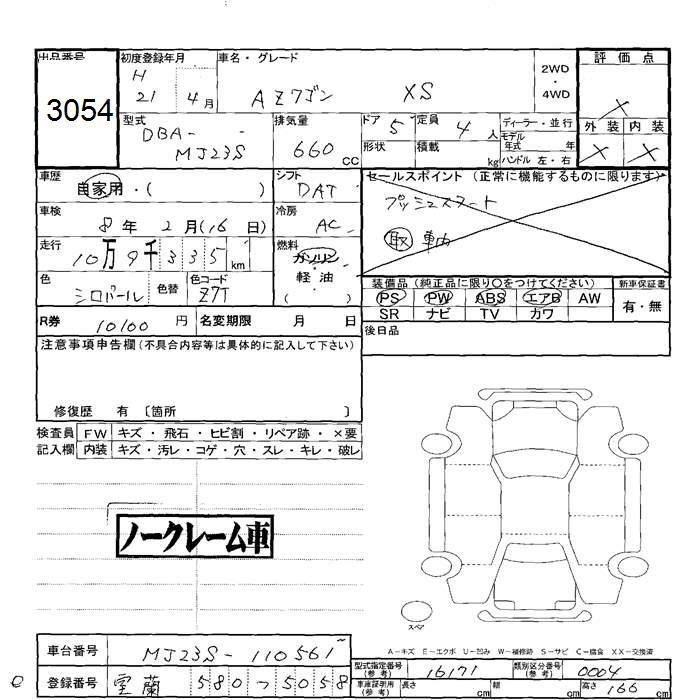 出品番号
3054
初度登録年月
H
21 4月
車名・グレード
AZワゴン XS
2WD
・
4WD
評価点
×
外装 内装
× ×
型式
DBA-
MJ23S
排気量
660 CC
ドア 5
形状
定員 4 人
積載 kg
ディーラー・並行
モデル年式 年
ハンドル 左・右
車歴
自家用・( )
シフト
DAT
セールスポイント (正常に機能するものに限ります)
プッシュスタート
取 車内
車検
8年 2月(16日)
冷房
AC
走行
10万9千335km
燃料
ガソリン
軽油
( )
色
シロパール
色替
色コード
Z7T
装備品 (純正品に限り○をつけてください)
PS PW ABS エアB AW
SR ナビ TV カワ
新車保証書
有・無
R券 10100 円
名変期限 月 日
後日品
注意事項申告欄(不具合内容等は具体的に記入して下さい)
修復歴 有 〔箇所 〕
検査員 FW キズ・飛石・ヒビ割・リペア跡・×要
記入欄 内装 キズ・汚レ・コゲ・穴・スレ・キレ・破レ
ノークレーム車
スペア
A-キズ E-エクボ U-凹み W-補修跡 S-サビ C-腐食 XX-交換済
車台番号 MJ23S-110561
登録番号 室蘭 580 - 5058
型式指定番号(参考) 16171
類別区分番号(参考) 0004
車庫証明用(参考) 長さ cm 幅 cm 高さ 166 cm